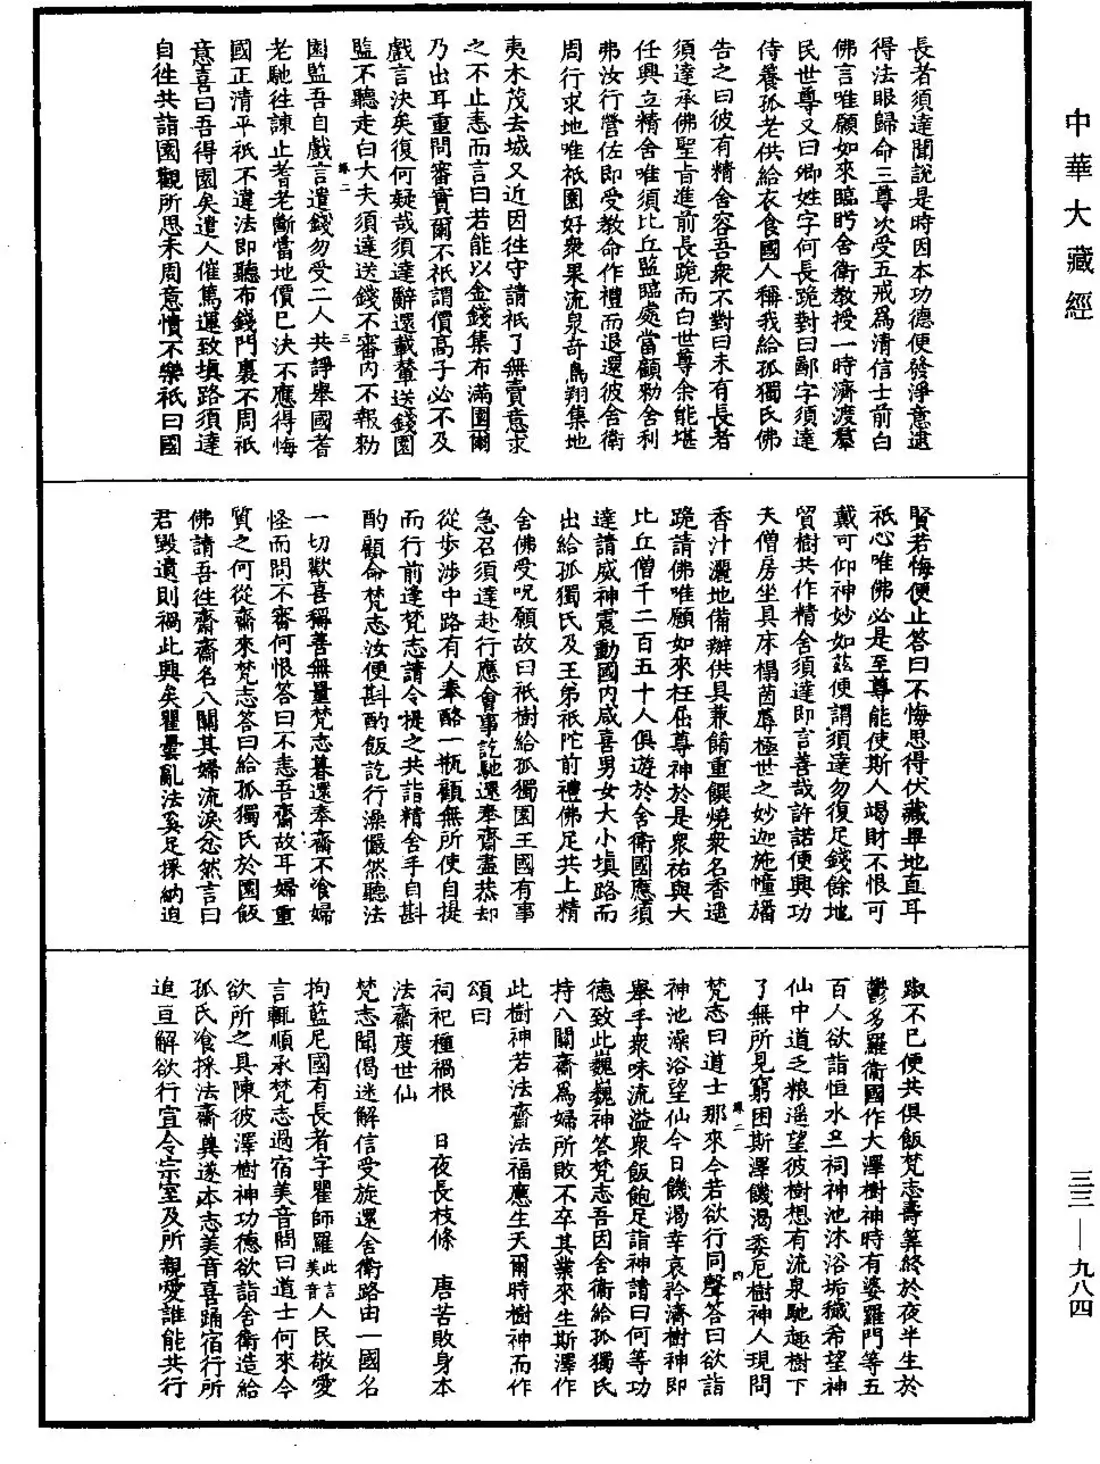 中華大藏經
長者須達聞說是時因本功德便發淨意逮
得法眼歸命三尊次受五戒為清信士前白
佛言唯願如來臨眄舍衛教授一時濟渡羣
民世尊又曰卿姓字何長跪對曰鄙字須達
侍養孤老供給衣食國人稱我給孤獨氏佛
告之曰彼有精舍容吾衆不對曰未有長者
須達承佛聖旨進前長跪而白世尊余能堪
任興立精舍唯須比丘監臨處當顧勑舍利
弗汝行營佐即受教命作禮而退還彼舍衛
周行求地唯祇園好衆果流泉奇鳥翔集地
夷木茂去城又近因往守請祇了無賣意求
之不止恚而言曰若能以金錢集布滿園爾
乃出耳重問審實爾不祇謂價高子必不及
戲言決矣復何疑哉須達辭還載輦送錢園
監不聽走白大夫須達送錢不審內不報勑
園監吾自戲言遣錢勿受二人共諍舉國耆
老馳往諫止耆老斷當地價已決不應得悔
國正清平祇不違法即聽布錢門裏不周祇
意喜曰吾得園矣遣人催篤運致填路須達
自往共詣園觀所思未周意憒不樂祇曰國
賢若悔便止答曰不悔思得伏藏畢地直耳
祇心唯佛必是至尊能使斯人竭財不恨可
戴可仰神妙如茲便謂須達勿復足錢餘地
貿樹共作精舍須達即言善哉許諾便興功
夫僧房坐具床榻茵蓐極世之妙迦施幢旛
香汁灑地備辦供具兼餚重饌燒衆名香遥
跪請佛唯願如來枉屈尊神於是衆祐與大
比丘僧千二百五十人俱遊於舍衛國應須
達請威神震動國內咸喜男女大小填路而
出給孤獨氏及王弟祇陀前禮佛足共上精
舍佛受呪願故曰祇樹給孤獨園王國有事
急召須達赴行應會事訖馳還奉齋盡恭却
從步涉中路有人奉酪一瓶顧無所使自提
而行前逢梵志請令提之共詣精舍手自斟
酌顧命梵志汝便斟酌飯訖行澡儼然聽法
一切歡喜稱善無量梵志暮還奉齋不飡婦
怪而問不審何恨答曰不恚吾齋故耳婦重
質之何從齋來梵志答曰給孤獨氏於園飯
佛請吾往齋齋名八關其婦流淚忿然言曰
君毀遺則禍此興矣瞿曇亂法奚足採納迫
踧不已便共俱飯梵志壽算終於夜半生於
鬱多羅衛國作大澤樹神時有婆羅門等五
百人欲詣恒水三祠神池沐浴垢穢希望神
仙中道乏粮遥望彼樹想有流泉馳趣樹下
了無所見窮困斯澤饑渴委厄樹神人現問
梵志曰道士那來今若欲行同聲答曰欲詣
神池澡浴望仙今日饑渴幸哀矜濟樹神即
舉手衆味流溢衆飯飽足詣神請曰何等功
德致此巍巍神答梵志吾因舍衛給孤獨氏
持八關齋為婦所敗不卒其業來生斯澤作
此樹神若法齋法福應生天爾時樹神而作
頌曰
祠祀種禍根　日夜長枝條　唐苦敗身本
法齋度世仙
梵志聞偈迷解信受旋還舍衛路由一國名
拘藍尼國有長者字瞿師羅此言美音人民敬愛
言輒順承梵志過宿美音問曰道士何來今
欲所之具陳彼澤樹神功德欲詣舍衛造給
孤氏飡採法齋冀遂本志美音喜踊宿行所
追亘解欲行宣令宗室及所親愛誰能共行
三三—九八四